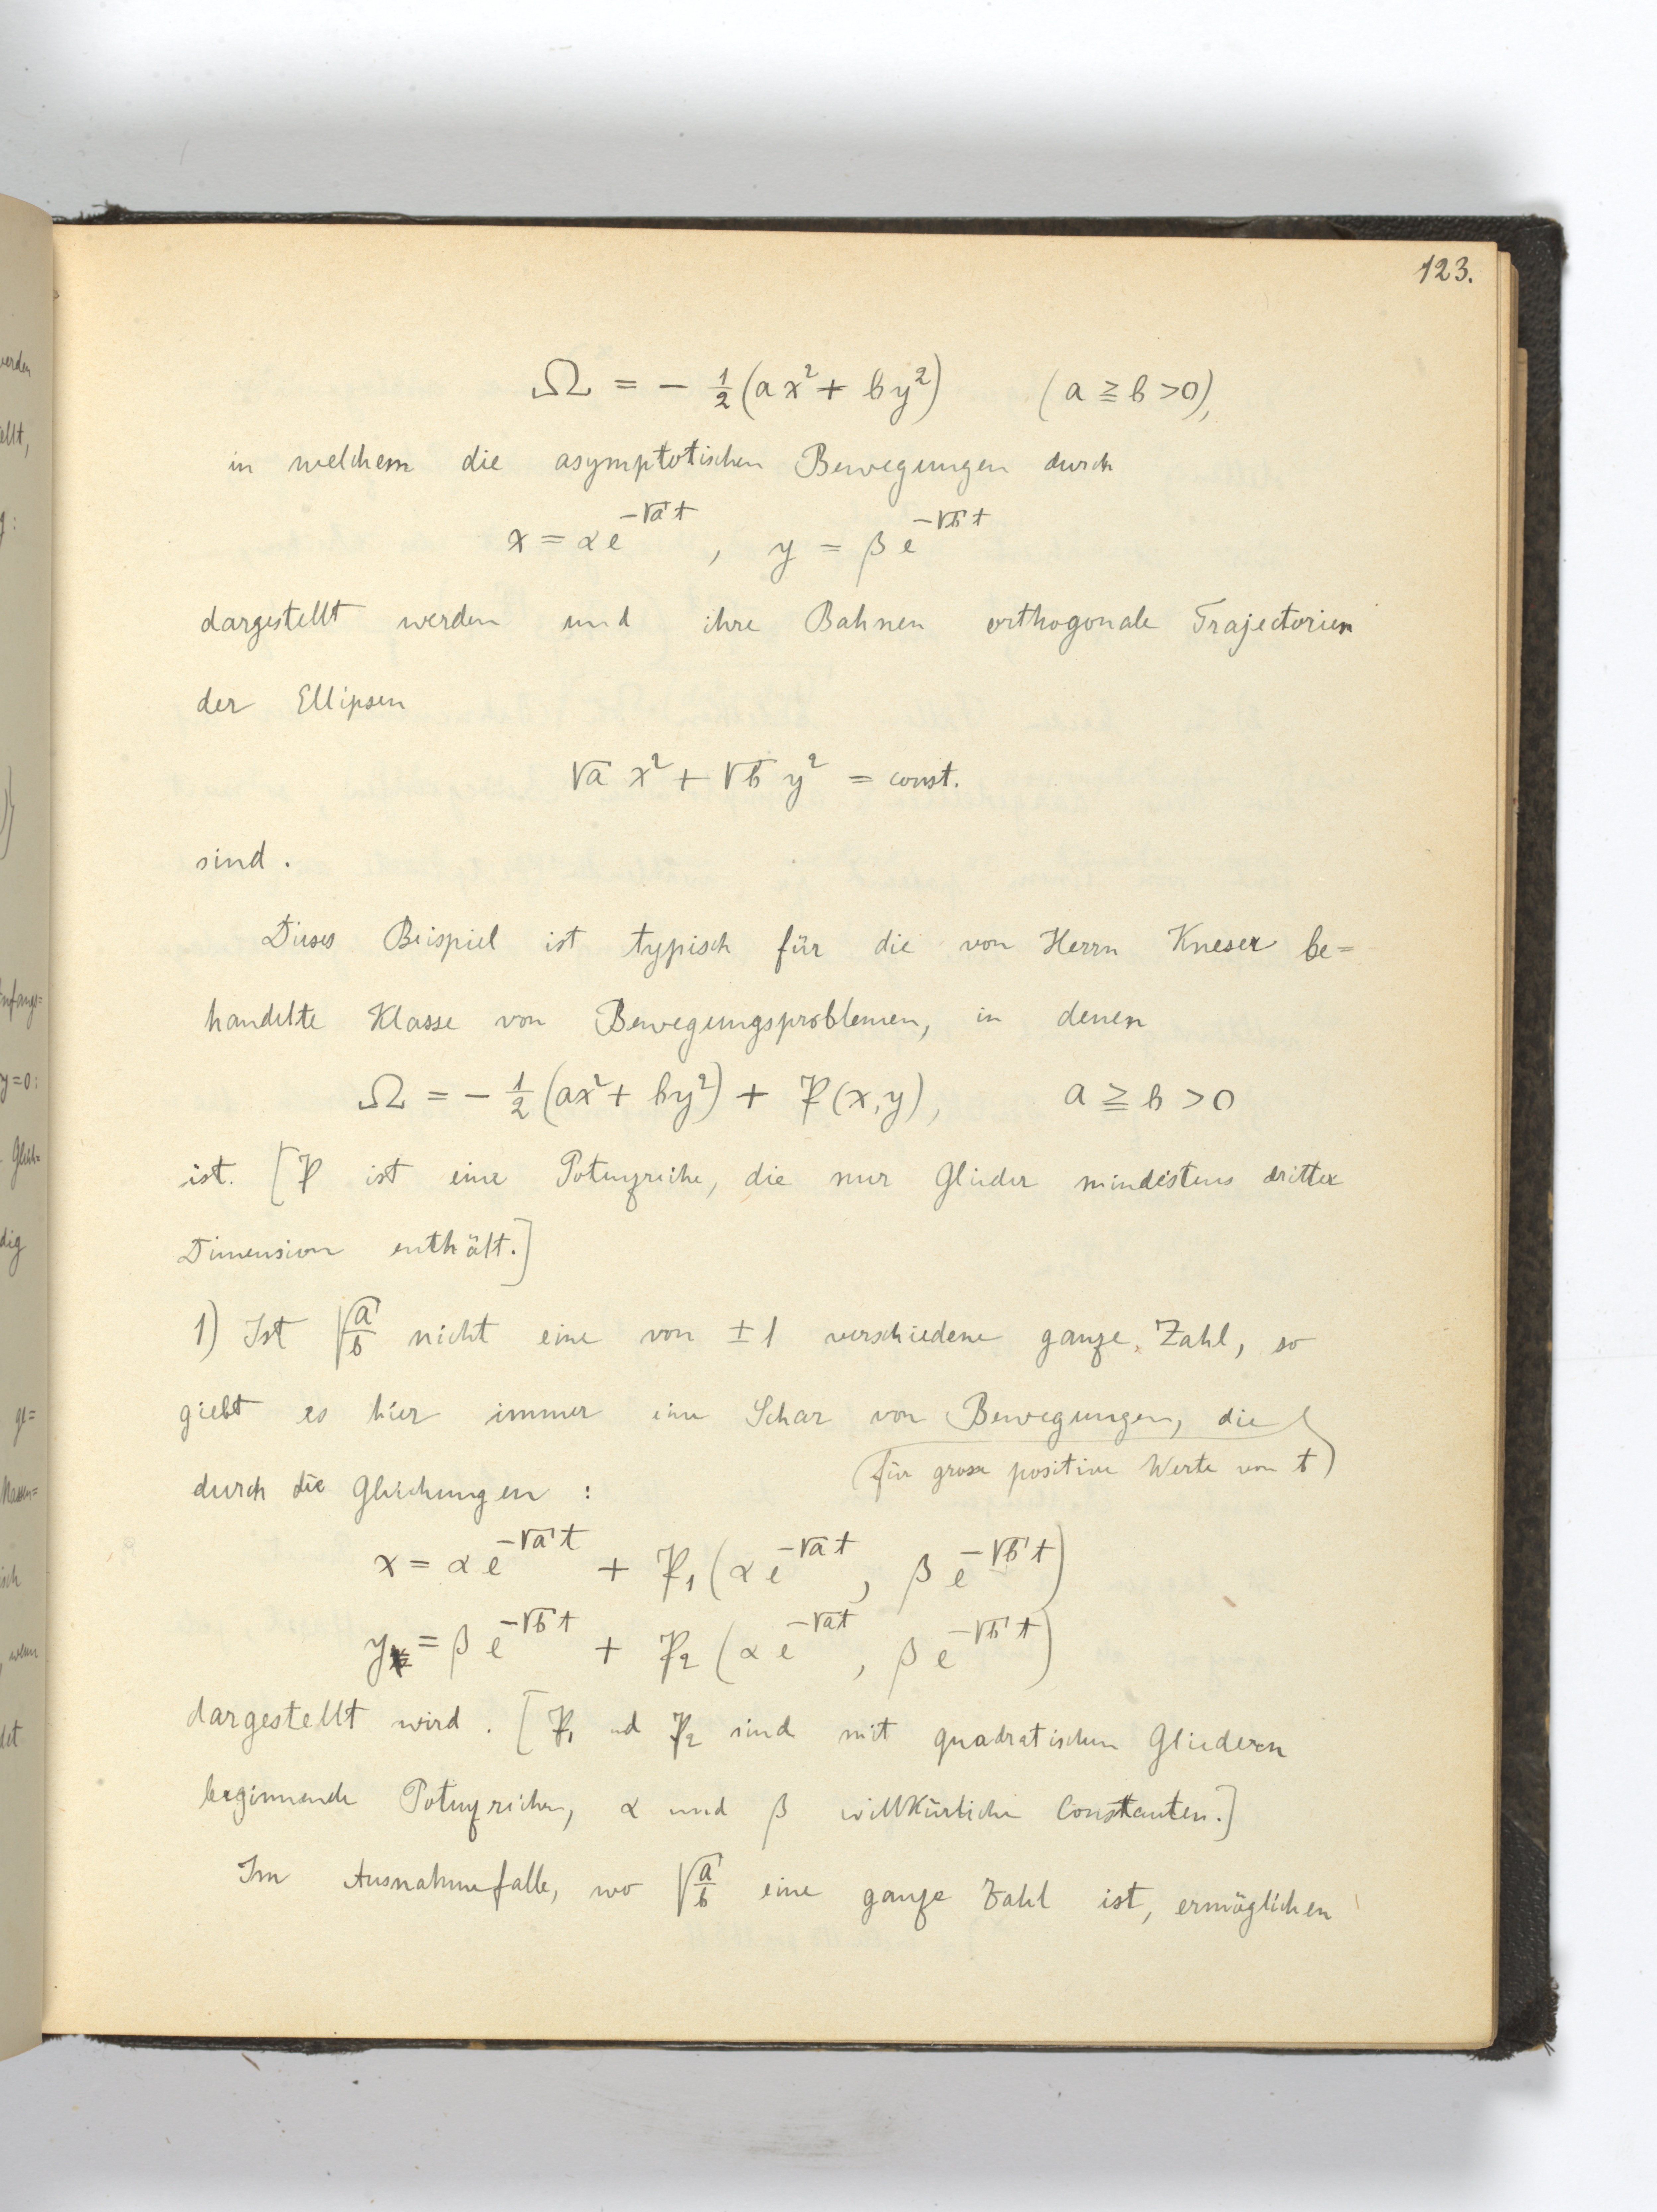 123.
Ω = − 1/2 (ax² + by²) (a ≧ b > 0),
in welchem die asymptotischen Bewegungen durch
x = α e^{−√a t} , y = β e^{−√b t}
dargestellt werden und ihre Bahnen orthogonale Trajectorien
der Ellipsen
√a x² + √b y² = const.
sind.
Dieses Beispiel ist typisch für die von Herrn Kneser be=
handelte Klasse von Bewegungsproblemen, in denen
Ω = − 1/2 (ax² + by²) + P(x,y), a ≧ b > 0
ist. [P ist eine Potenzreihe, die nur Glieder mindistens dritter
Dimension enthält.]
1) Ist √(a/b) nicht eine von ±1 verschiedene ganze Zahl, so
giebt es hier immer eine Schar von Bewegungen, die
(für grosse positive Werte von t)
durch die Gleichungen :
x = α e^{−√a t} + P₁ (α e^{−√a t}, β e^{−√b t})
y = β e^{−√b t} + P₂ (α e^{−√a t}, β e^{−√b t})
dargestellt wird. [P₁ und P₂ sind mit quadratischen Gliedern
beginnende Potenzreihen, α und β willkürliche Constanten.]
Im Ausnahmefalle, wo √(a/b) eine ganze Zahl ist, ermöglichen
werden
ellt,
y=0:
dig
ge=
wenn